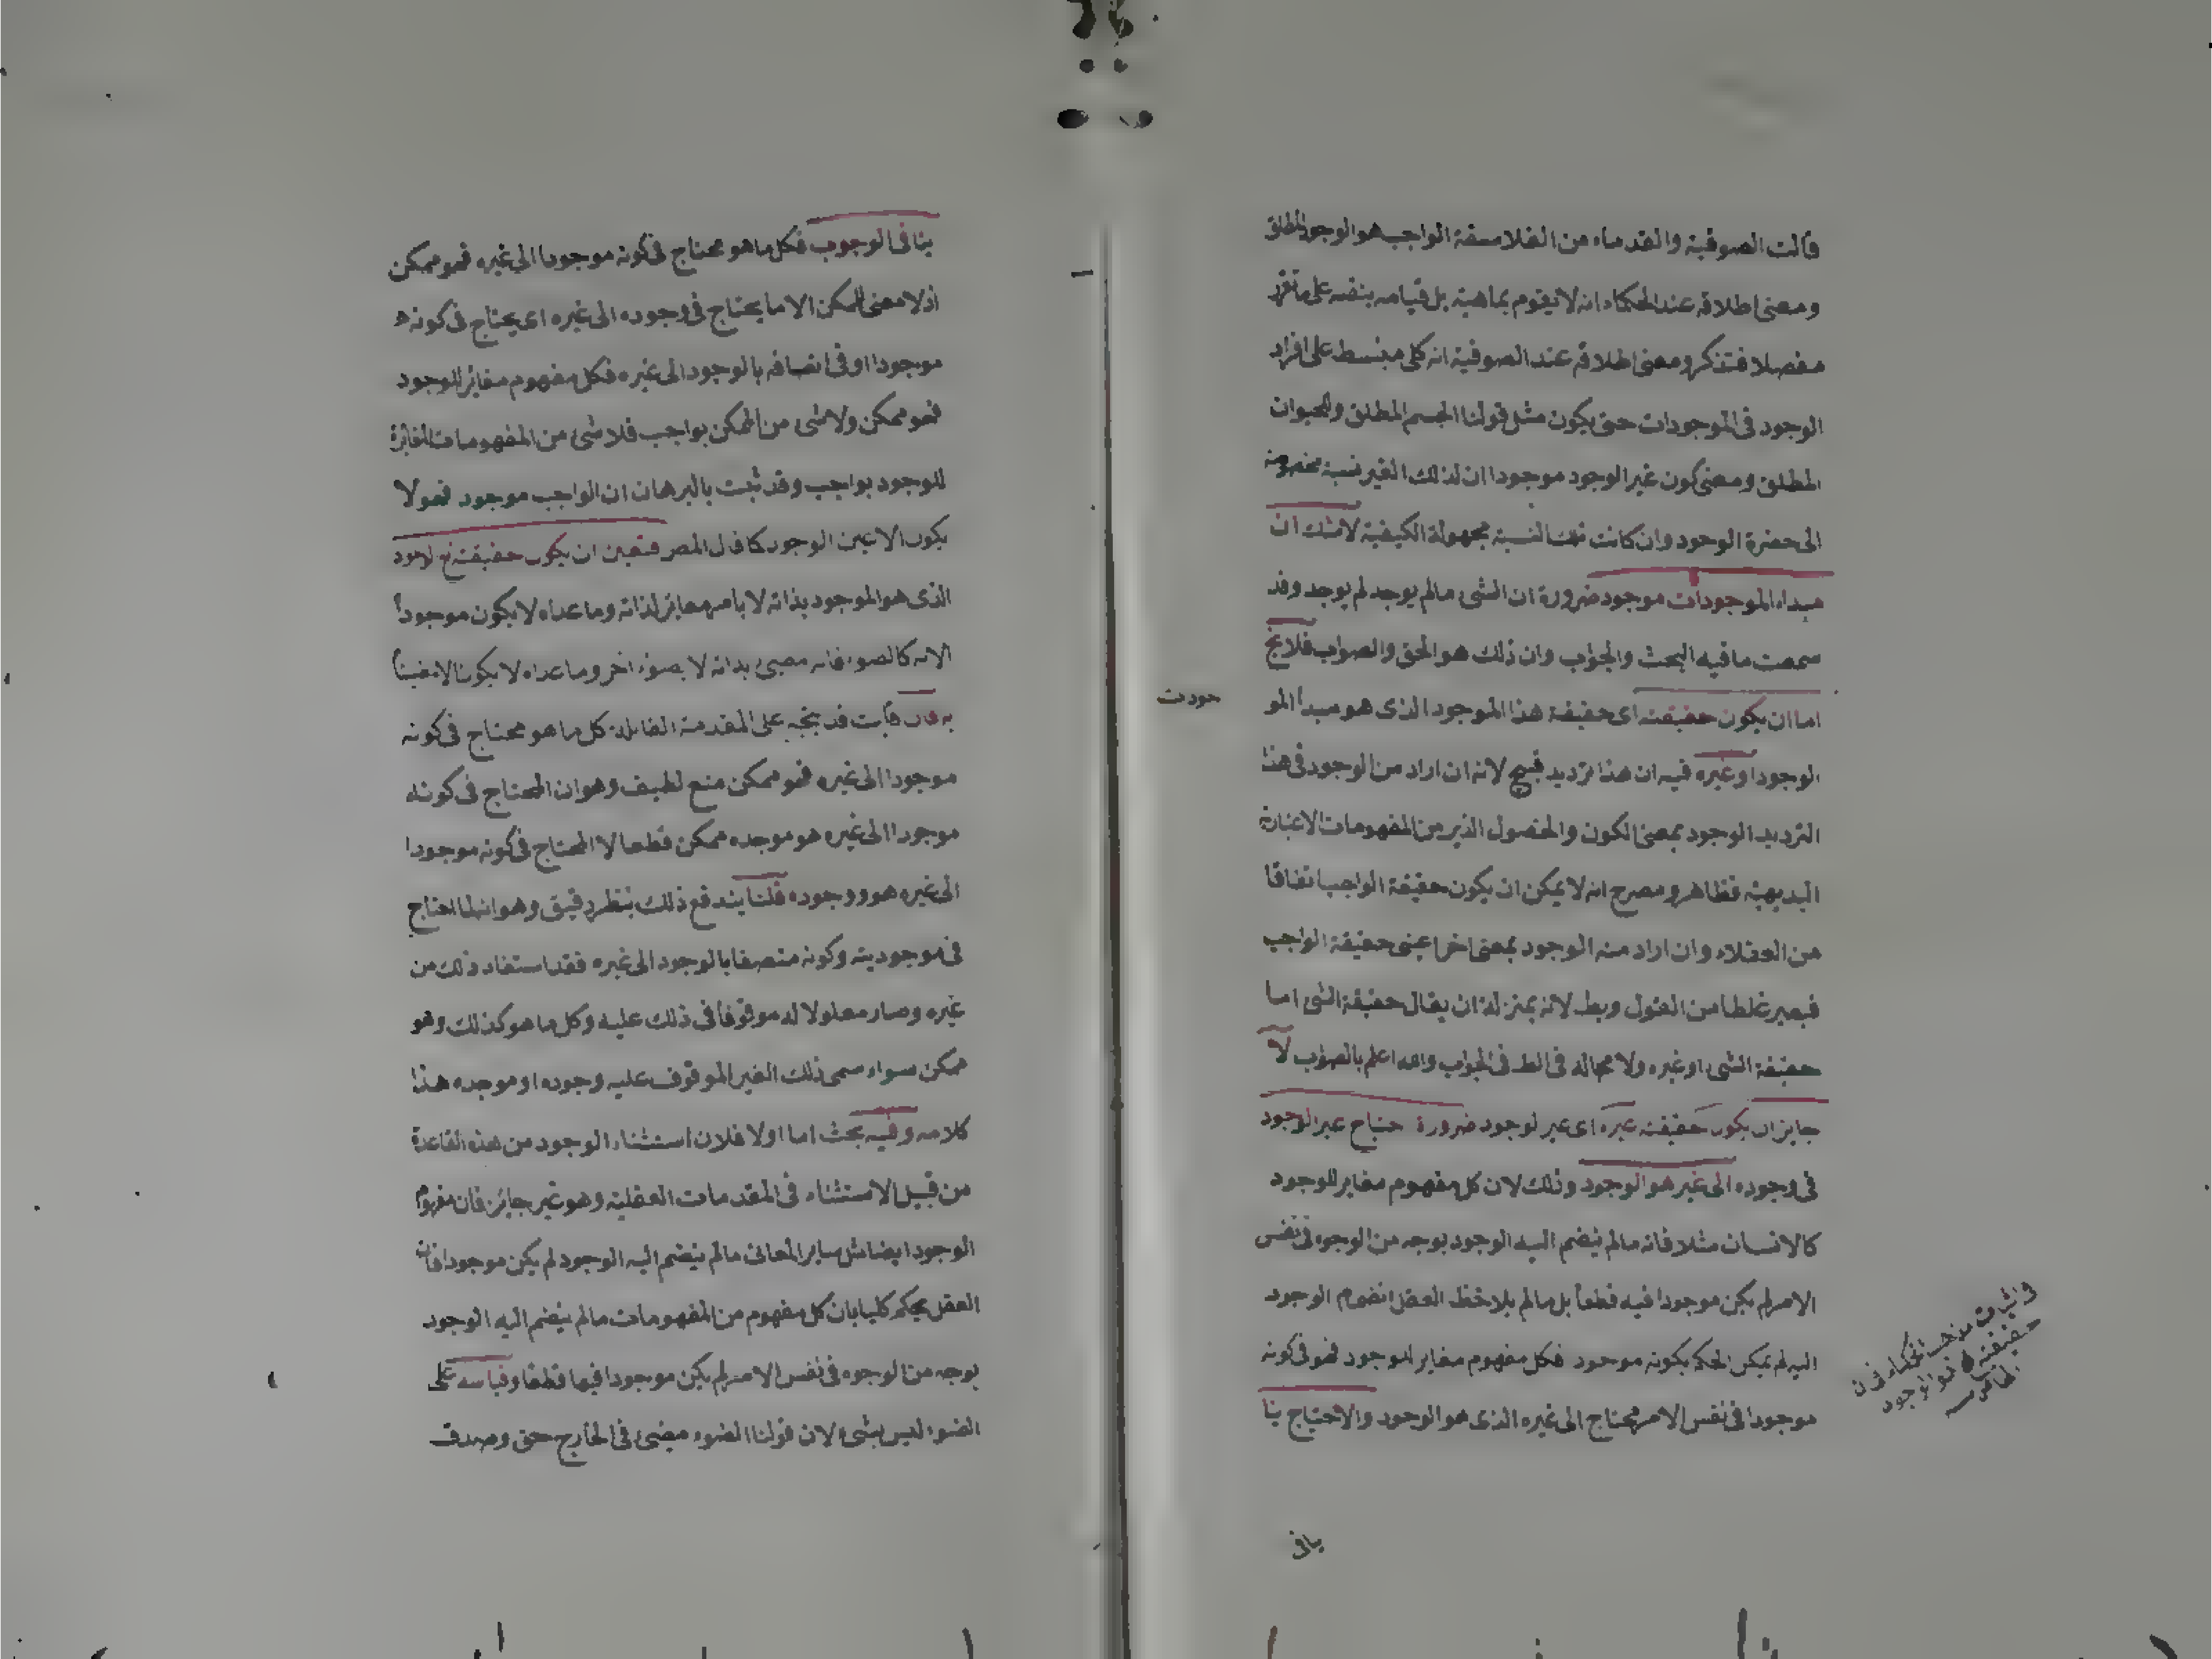 قالت الصوفية والقدماء من الفلاسفة الواجب هو الوجود المطلق
ومعنى اطلاقه عند الحكماء انه لا يقوم بماهية بل قيامه بنفسه على ما تقرر
مفصلا فتذكر ومعنى اطلاقه عند الصوفية انه كلى منبسط على افراد
الوجود فى الموجودات حتى يكون مثل قولنا الجسم المطلق والحيوان
المطلق ومعنى كون غير الوجود موجودا ان لذلك الغير نسبة مخصوصة
الى حضرة الوجود وان كانت تلك النسبة مجهولة الكيفية لا شك ان
مبداء الموجودات موجود ضرورة ان الشئ مالم يوجد لم يوجد وقد
سمعت ما فيه البحث والجواب وان ذلك هو الحق والصواب فلا يخ
اما ان يكون حقيقته اى حقيقة هذا الموجود الذى هو مبدأ المو
جودات
الوجود او غيره فيه ان هذا ترديد قبيح لانه ان اراد من الوجود فى هذا
الترديد الوجود بمعنى الكون والحصول الذى من المفهومات الاعتبارية
البديهية فظاهر ومصرح انه لا يمكن ان يكون حقيقة الواجب اتفاقا
من العقلاء وان اراد منه الوجود بمعنى اخر اعنى حقيقة الواجب
فيصير غلطا من القول وبط لانه بمنزلة ان يقال حقيقة الشئ اما
حقيقة الشئ او غيره ولا محالة فى الط فى الجواب والله اعلم بالصواب لا
جايز ان يكون حقيقته غيره اى غير الوجود ضرورة احتياج غير الوجود
فى وجوده الى غير هو الوجود وذلك لان كل مفهوم مغاير للوجود
كالانسان مثلا فانه مالم ينضم اليه الوجود بوجه من الوجوه فى نفس
الامر لم يكن موجودا فيه قطعا بل مالم يلاحظ العقل انضمام الوجود
اليه لم يمكن الحكم بكونه موجود فكل مفهوم مغاير للوجود فهو فى كونه
موجودا فى نفس الامر محتاج الى غيره الذى هو الوجود والاحتياج ينا
ينافى الوجوب فكل ما هو محتاج فى كونه موجودا الى غيره فهو ممكن
اذ لا معنى للممكن الا ما يحتاج فى وجوده الى غيره اى يحتاج فى كونه
موجودا او فى اتصافه بالوجود الى غيره فكل مفهوم مغاير للوجود
فهو ممكن ولا شئ من الممكن بواجب فلا شئ من المفهومات المغايرة
للوجود بواجب وقد ثبت بالبرهان ان الواجب موجود فهو لا
يكون الا عين الوجود كما قال المصر فتعين ان يكون حقيقته
الذى هو الموجود بذاته لا بامر مغاير لذاته وما عداه لا يكون موجودا
الا به كالضوء فانه مضيئ بذاته لا بضوء اخر وما عداه لا يكون الا مضيئا
به فان قلت قد يتجه على المقدمة القايلة كل ما هو محتاج فى كونه
موجودا الى غيره فهو ممكن منع لطيف وهو ان المحتاج فى كونه
موجودا الى غيره هو موجده ممكن قطعا لا المحتاج فى كونه موجودا
الى غيره هو وجوده قلنا يندفع ذلك بنظر دقيق وهو انه لما احتاج
فى موجوديته وكونه متصفا بالوجود الى غيره فقد استفاد ذلك من
غيره وصار معلولا له موقوفا فى ذلك عليه وكل ما هو كذلك وهو
ممكن سواء سمى ذلك الغير الموقوف عليه وجوده او موجده هذا
كلامه وفيه بحث اما اولا فلان استثناء الوجود من هذه القاعدة
من قبيل الاستثناء فى المقدمات العقلية وهو غير جايز فان مفهوم
الوجود ايضا مثل ساير المعانى مالم ينضم اليه الوجود لم يكن موجودا فان
العقل يحكم كليا بان كل مفهوم من المفهومات مالم ينضم اليه الوجود
بوجه من الوجوه فى نفس الامر لم يكن موجودا فيها قطعا وقياسه على
الضوء ليس بشئ لان قولنا الضوء مضيئ فى الخارج حق وصدق